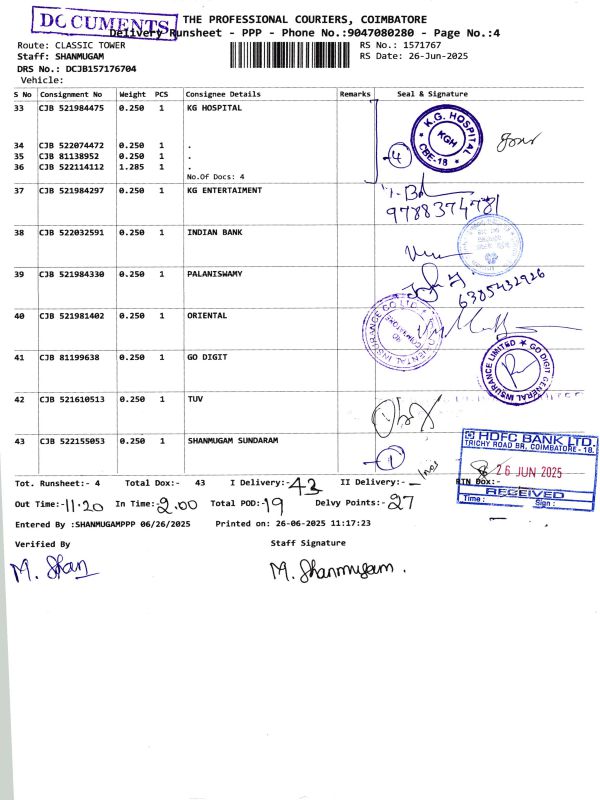 DOCUMENTS
THE PROFESSIONAL COURIERS, COIMBATORE
Delivery Runsheet - PPP - Phone No.:9047080280 - Page No.:4
Route: CLASSIC TOWER RS No.: 1571767
Staff: SHANMUGAM RS Date: 26-Jun-2025
DRS No.: DCJB157176704
Vehicle:
S No Consignment No Weight PCS Consignee Details Remarks Seal & Signature
33 CJB 521984475 0.250 1 KG HOSPITAL
K.G. HOSPITAL
KGH
CBE-18
34 CJB 522074472 0.250 1 .
35 CJB 81138952 0.250 1 .
4
36 CJB 522114112 1.285 1 .
No.Of Docs: 4
37 CJB 521984297 0.250 1 KG ENTERTAIMENT
9788374781
38 CJB 522032591 0.250 1 INDIAN BANK
39 CJB 521984330 0.250 1 PALANISWAMY
6385432926
40 CJB 521981402 0.250 1 ORIENTAL
ORIENTAL INSURANCE CO LTD
41 CJB 81199638 0.250 1 GO DIGIT
GO DIGIT GENERAL INSURANCE LIMITED
42 CJB 521610513 1.250 1 TUV
43 CJB 522155053 0.250 1 SHANMUGAM SUNDARAM
1
HDFC BANK LTD.
TRICHY ROAD BR, COIMBATORE - 18.
26 JUN 2025
RECEIVED
Time: Sign:
Tot. Runsheet:- 4 Total Dox:- 43 I Delivery:- 43 II Delivery:- RTN Dox:-
Out Time:- 11.20 In Time:- 2.00 Total POD:- 19 Delvy Points:- 27
Entered By :SHANMUGAMPPP 06/26/2025 Printed on: 26-06-2025 11:17:23
Verified By Staff Signature
M. Shan M. Shanmugam.